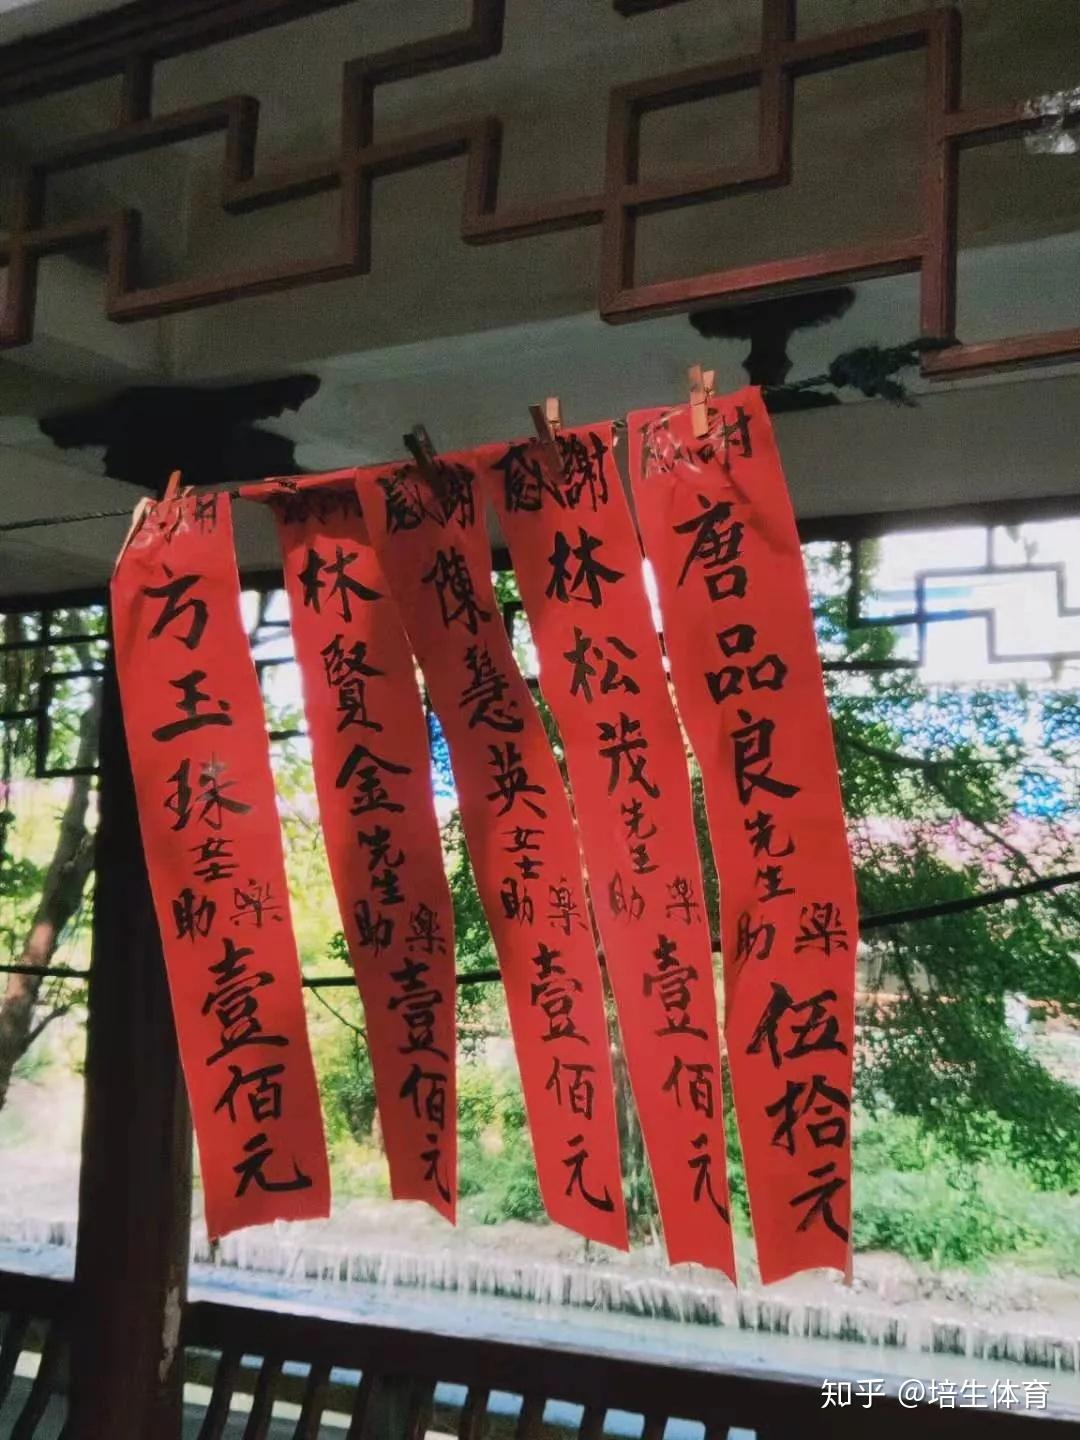 感謝唐品良先生楽助伍拾元
感謝林松茂先生楽助壹佰元
感謝陳慧英女士楽助壹佰元
感謝林賢金先生楽助壹佰元
感謝方玉珠女士楽助壹佰元
知乎 @培生体育